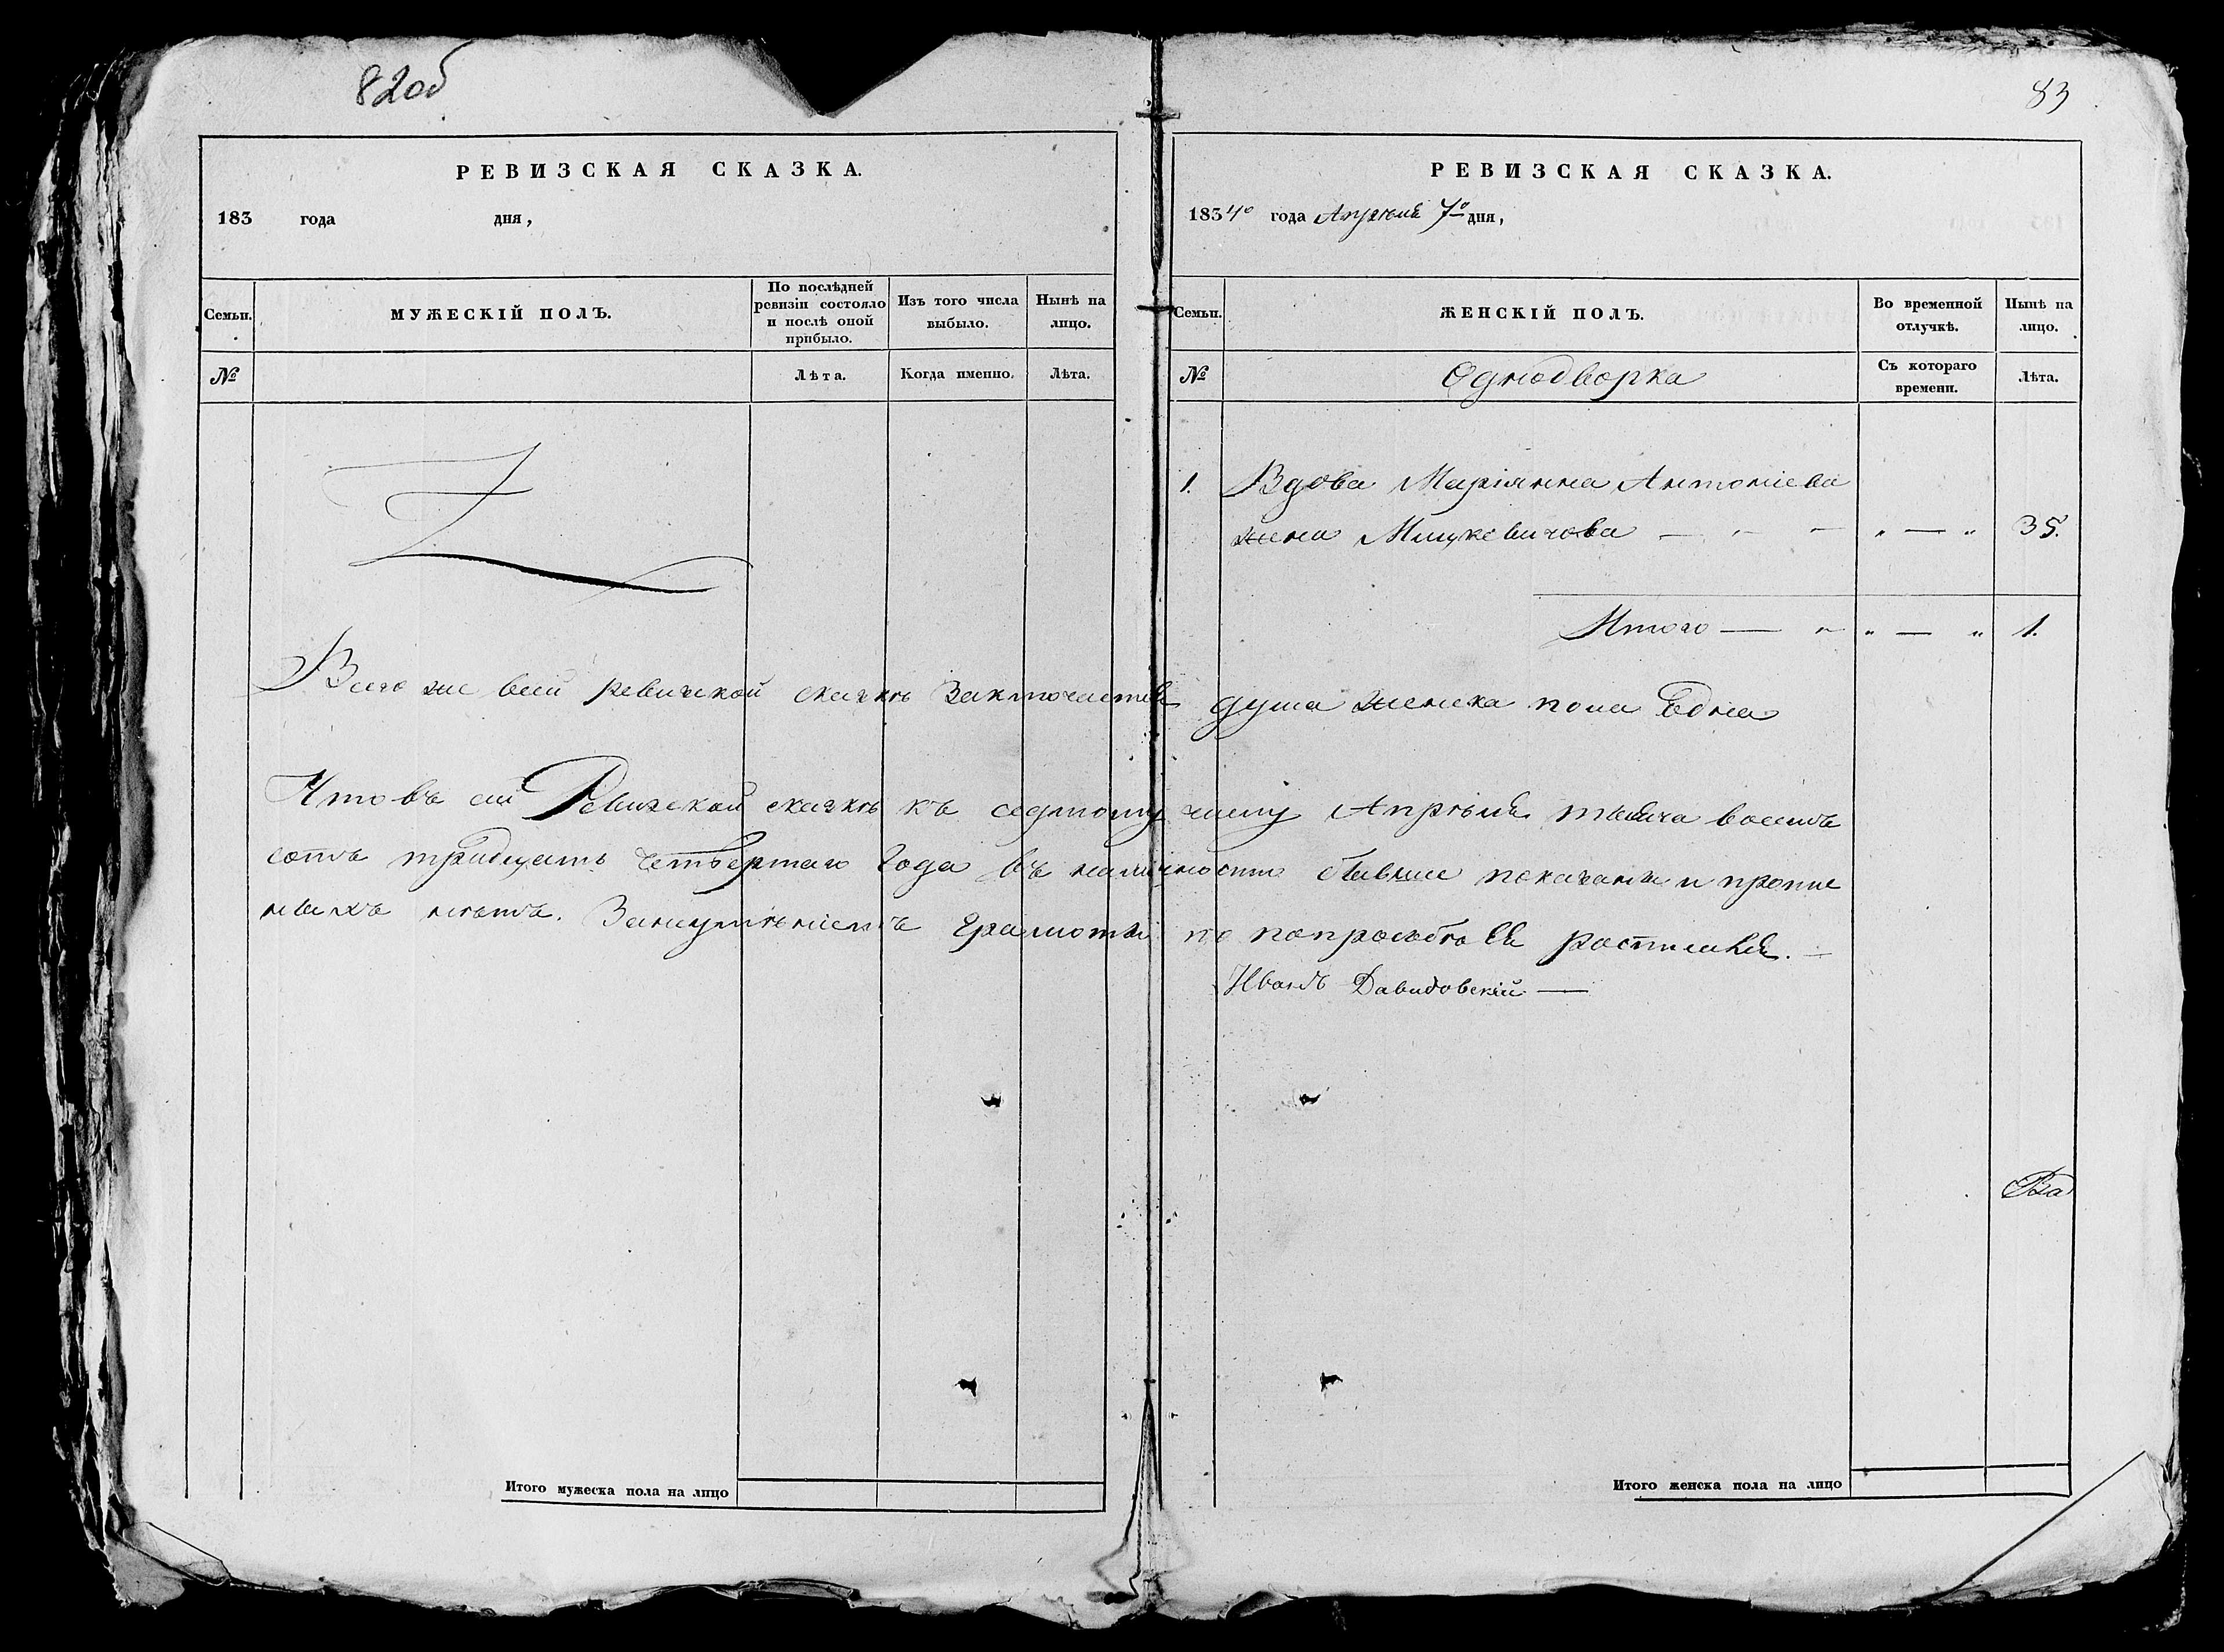 82об
РЕВИЗСКАЯ СКАЗКА.
183 года дня,
Семьи.
МУЖЕСКІЙ ПОЛЪ.
По послѣдней ревизіи состояло и послѣ оной прибыло.
Изъ того числа выбыло.
Нынѣ на лицо.
№
Лѣта.
Когда именно.
Лѣта.
83
РЕВИЗСКАЯ СКАЗКА.
1834го года Апрѣля 7го дня,
Семьи.
ЖЕНСКІЙ ПОЛЪ.
Во временной отлучкѣ.
Нынѣ на лицо.
№
Однодворка
Съ котораго времени.
Лѣта.
1. Вдова Маріянна Антоніева
жена Мицкевичова — " — " — " 35.
Итого — " " — " 1.
Всего же всей ревизской сказкѣ Заключается душа женска пола Една
Что въ сей Ревизской сказкѣ къ седмому числу Апрѣля тысяча восемъ
сотъ тридцать четвертаго года въ наличности бывшие показаны и пропис
ныхъ нѣтъ. Занеумѣніемъ Грамоты по попросьбѣ Ея росписался. —
Иванъ Давидовскій —
Итого мужеска пола на лицо
Итого женска пола на лицо